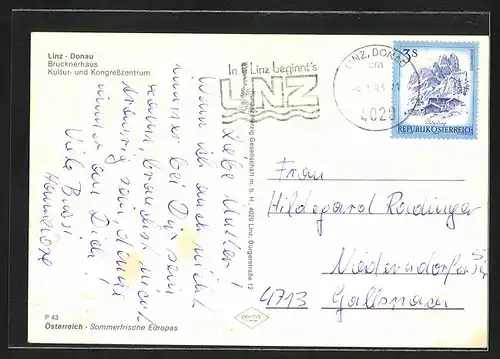 Linz - Donau
Brucknerhaus
Kultur- und Kongreßzentrum
In Linz beginnt's
LINZ
LINZ, DONAU
4020
3 S
REPUBLIK ÖSTERREICH
Liebe Mutter!
Wenn ich auch nicht
immer bei Dir sein
kann brauchst nicht
traurig sein, denke
immer an Dich!
Viele Bussi
Hannelore
Gesellschaft m. b. H., 4020 Linz, Bürgerstraße 12
Frau
Hildegard
4713 Gallspach
P 43
Österreich - Sommerfrische Europas